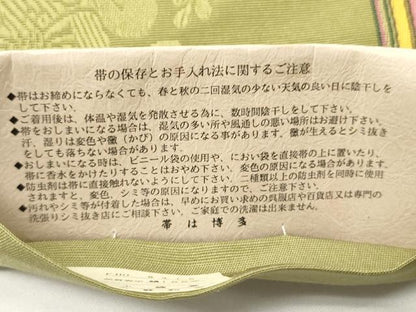 帯の保存とお手入れ法に関するご注意
◆帯はお締めにならなくても、春と秋の二回湿気の少ない天気の良い日に陰干しを
して下さい。
◆ご着用後は、体温や湿気を発散させる為に、数時間陰干しをして下さい。
◆帯をおしまいになる場合は、湿気の多い所や風通しの悪い場所はお避け下さい。
汗、湿りは変色や黴(かび)の原因になる事があります。黴が生えるとシミ抜き
をしても落ちない場合があります。
◆おしまいになる時は、ビニール袋の使用や、におい袋を直接帯の上に置いたり、
帯に香水をかけたりすることはおやめ下さい。変色の原因になります。
◆防虫剤は帯に直接触れないように入れて下さい。二種類以上の防虫剤を同時に使用
されますと、変色、シミ等の原因になりますので、ご注意下さい。
◆汚れやシミ等が付着した場合は、早めにお買い求めの呉服店や百貨店又は専門の
洗張りシミ抜き店にご相談下さい。ご家庭での洗濯は出来ません。
帯は博多